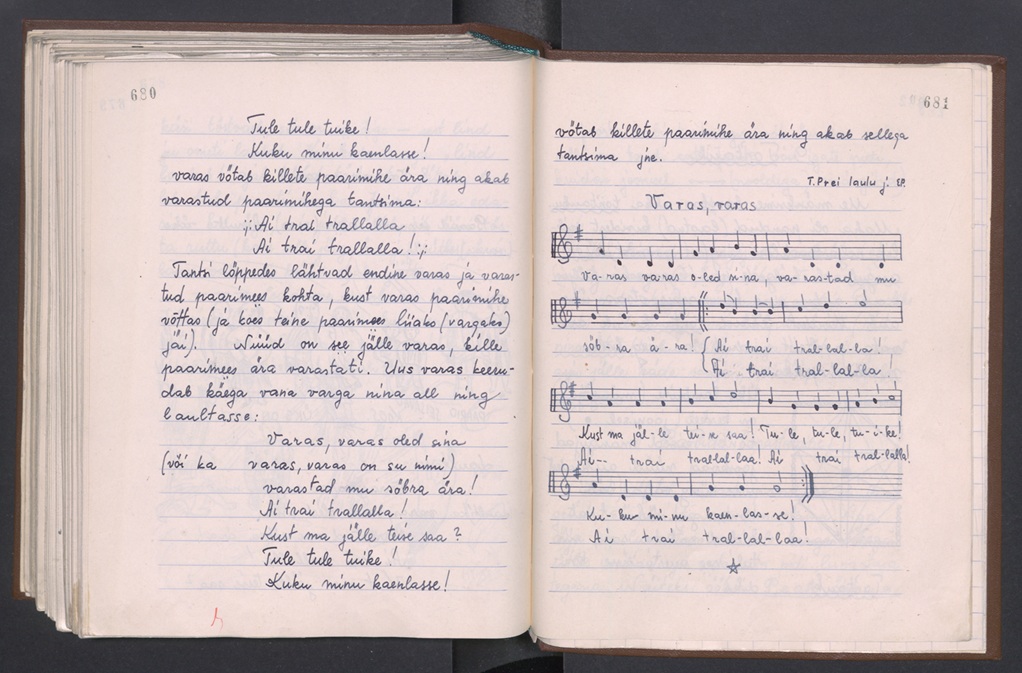 680
Tule tule tuike!
Kuku minu kaenlasse!
varas võtab killete paarimihe ära ning akab
varastud paarimihega tantsima:
;: Ai trai trallalla
Ai trai trallalla! :;
Tantsi lõppedes lähtvad endine varas ja varas-
tud paarimees kohta, kust varas paarimihe
võttas (ja koes teine paarimees liiaks (vargaks)
jäi). Nüüd on see jälle varas, kille
paarimees ära varastati. Uus varas keeru-
dab käega vana varga nina all ning
laultasse:
Varas, varas oled sina
(või ka varas, varas on su nimi)
varastad mu sõbra ära!
Ai trai trallalla!
Kust ma jälle teise saa?
Tule tule tuike!
Kuku minu kaenlasse!
681
võtab killete paarimihe ära ning akab sellega
tantsima jne.
T. Prei laulu j. EP.
Varas, varas
Va-ras varas o-led si-na, va-ras-tad mu
sõb-ra ä-ra! Ai trai tral-lal-la!
Ai trai tral-lal-la!
Kust ma jäl-le tei-se saa! Tu-le, tu-le, tu-i-ke!
Ai-- trai tral-lal-laa! Ai trai tral-lalla!
Ku-ku mi-nu kaen-las-se!
Ai trai tral-lal-laa!